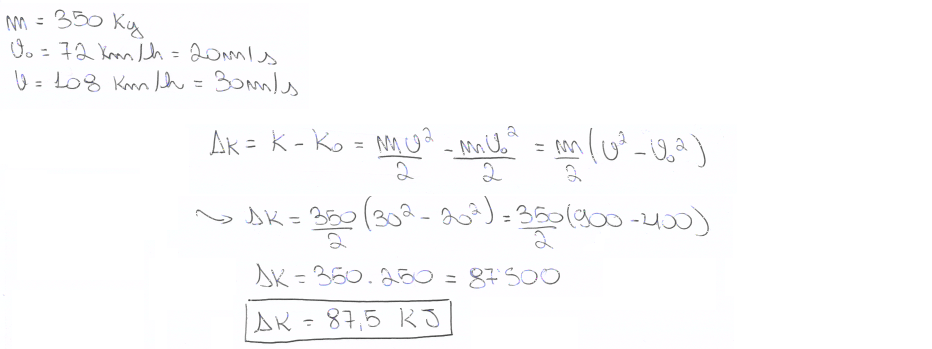 m = 350 Kg
v₀ = 72 Km/h = 20m/s
v = 108 Km/h = 30m/s
ΔK = K - K₀ = mv²/2 - mv₀²/2 = m/2 (v² - v₀²)
~> ΔK = 350/2 (30² - 20²) = 350/2 (900 - 400)
ΔK = 350 . 250 = 87500
ΔK = 87,5 KJ